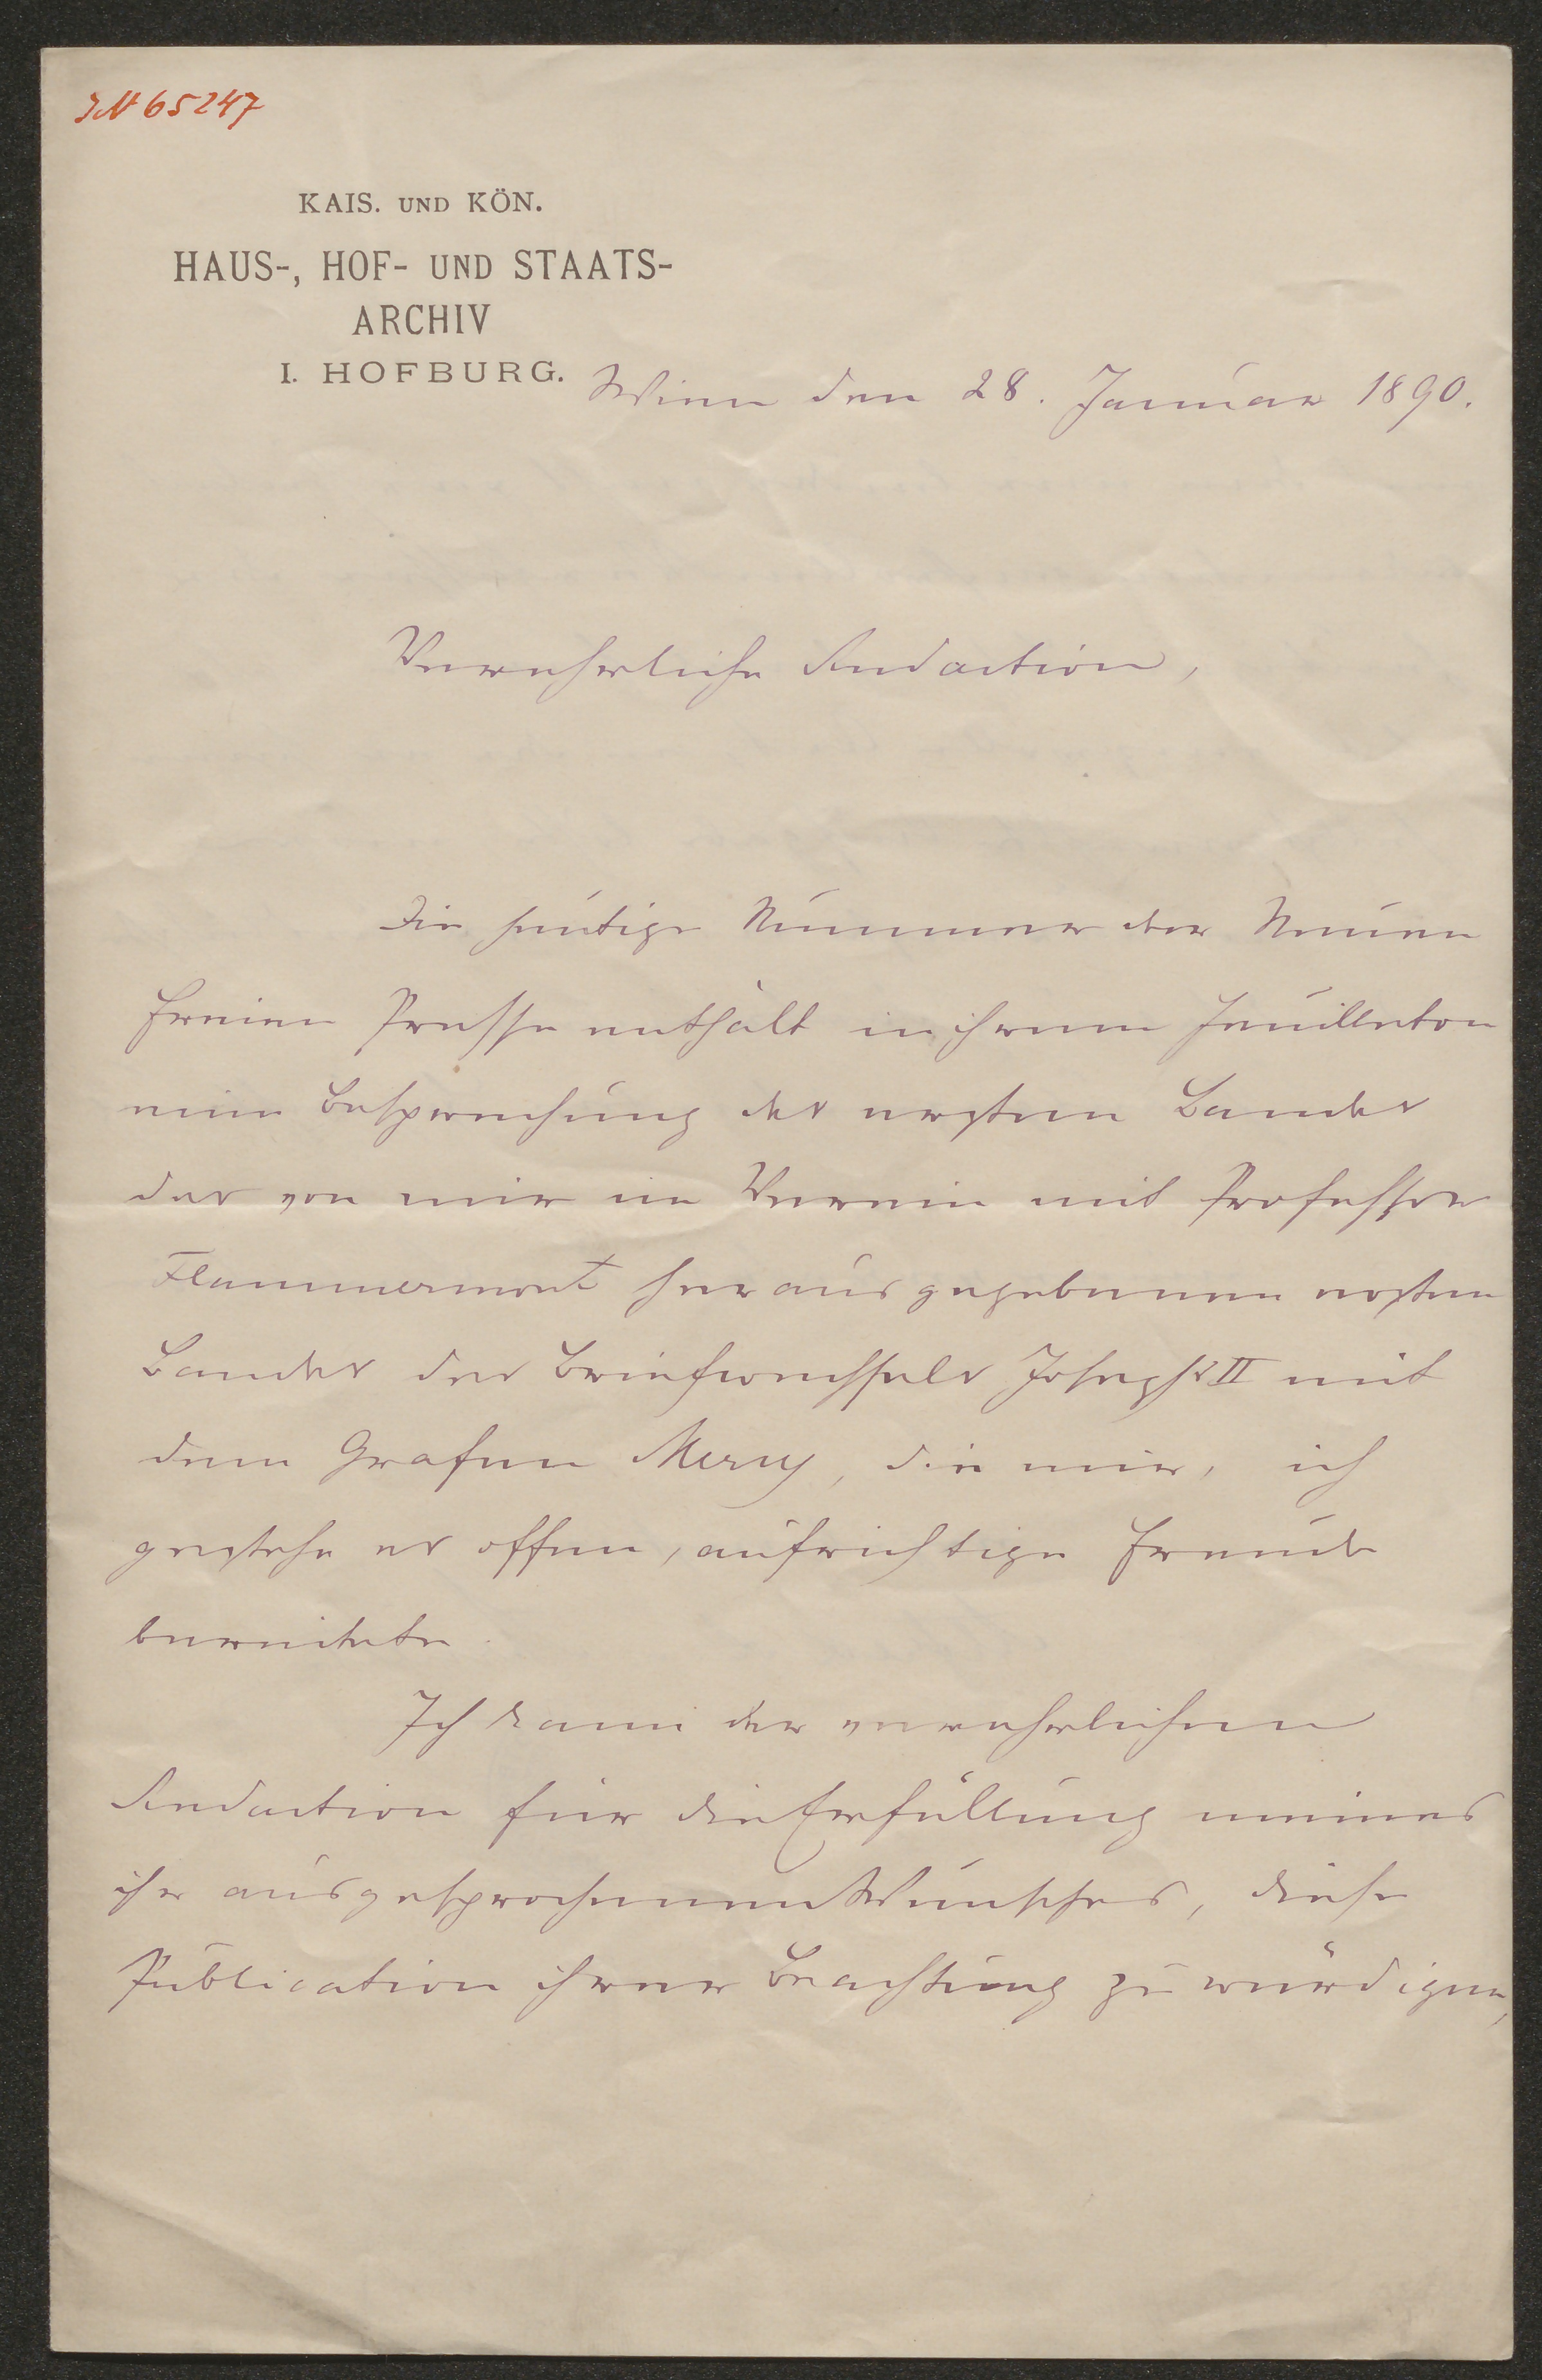 IN 65247
KAIS. UND KÖN.
HAUS-, HOF- UND STAATS-
ARCHIV
I. HOFBURG.
Wien den 28. Januar 1890.
Verehrliche Redaction,
Die heutige Nummer der Neuen
Freien Presse enthält in ihrem Feuilleton
eine Besprechung des ersten Bandes
des von mir im Verein mit Professor
Flammermont herausgegebenen ersten
Bandes des Briefwechsels Josephs II mit
dem Grafen Mercy, die mir, ich
gestehe es offen, aufrichtige Freude
bereitete.
Ich kann der verehrlichen
Redaction für die Erfüllung meines
ihr ausgesprochenen Wunsches, diese
Publication ihrer Beachtung zu würdigen,